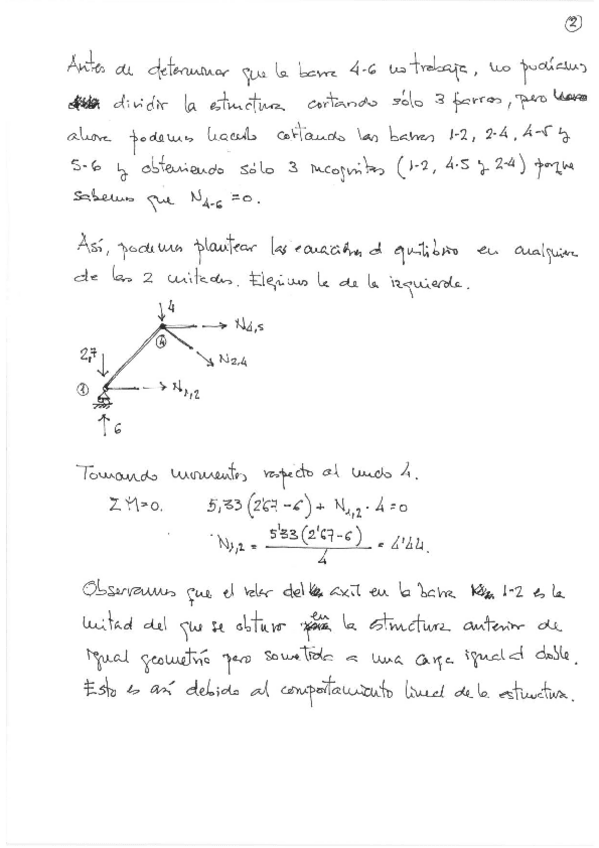 2
Antes de determinar que la barra 4-6 no trabaja, no podíamos
dividir la estructura cortando sólo 3 barras, pero
ahora podemos hacerlo cortando las barras 1-2, 2-4, 4-5 y
5-6 y obteniendo sólo 3 incognitas (1-2, 4-5 y 2-4) porque
sabemos que N4-6 = 0.
Así, podemos plantear las ecuaciones d equilibrio en cualquiera
de las 2 mitades. Elegimos la de la izquierda.
4
N4,5
4
2,7
N2,4
1
N1,2
6
Tomando momentos respecto al nudo 4.
ΣM=0. 5,33(2'67-6) + N1,2 · 4 = 0
N1,2 = 5'33(2'67-6) / 4 = 4'44.
Observamos que el valor del axil en la barra 1-2 es la
mitad del que se obtuvo en la estructura anterior de
igual geometría pero sometida a una carga igual al doble.
Esto es así debido al comportamiento lineal de la estructura.